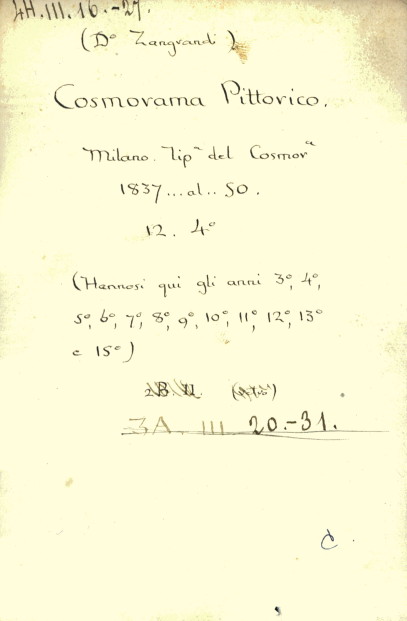 4H.III.16.-27.
(Dº Zangrandi)
Cosmorama Pittorico.
Milano. Tipª del Cosmorª
1837...al..50.
12. 4º
(Hannosi qui gli anni 3º, 4º,
5º, 6º, 7º, 8º, 9º, 10º, 11º, 12º, 13º
e 15º)
3A. III 20.-31.
C.